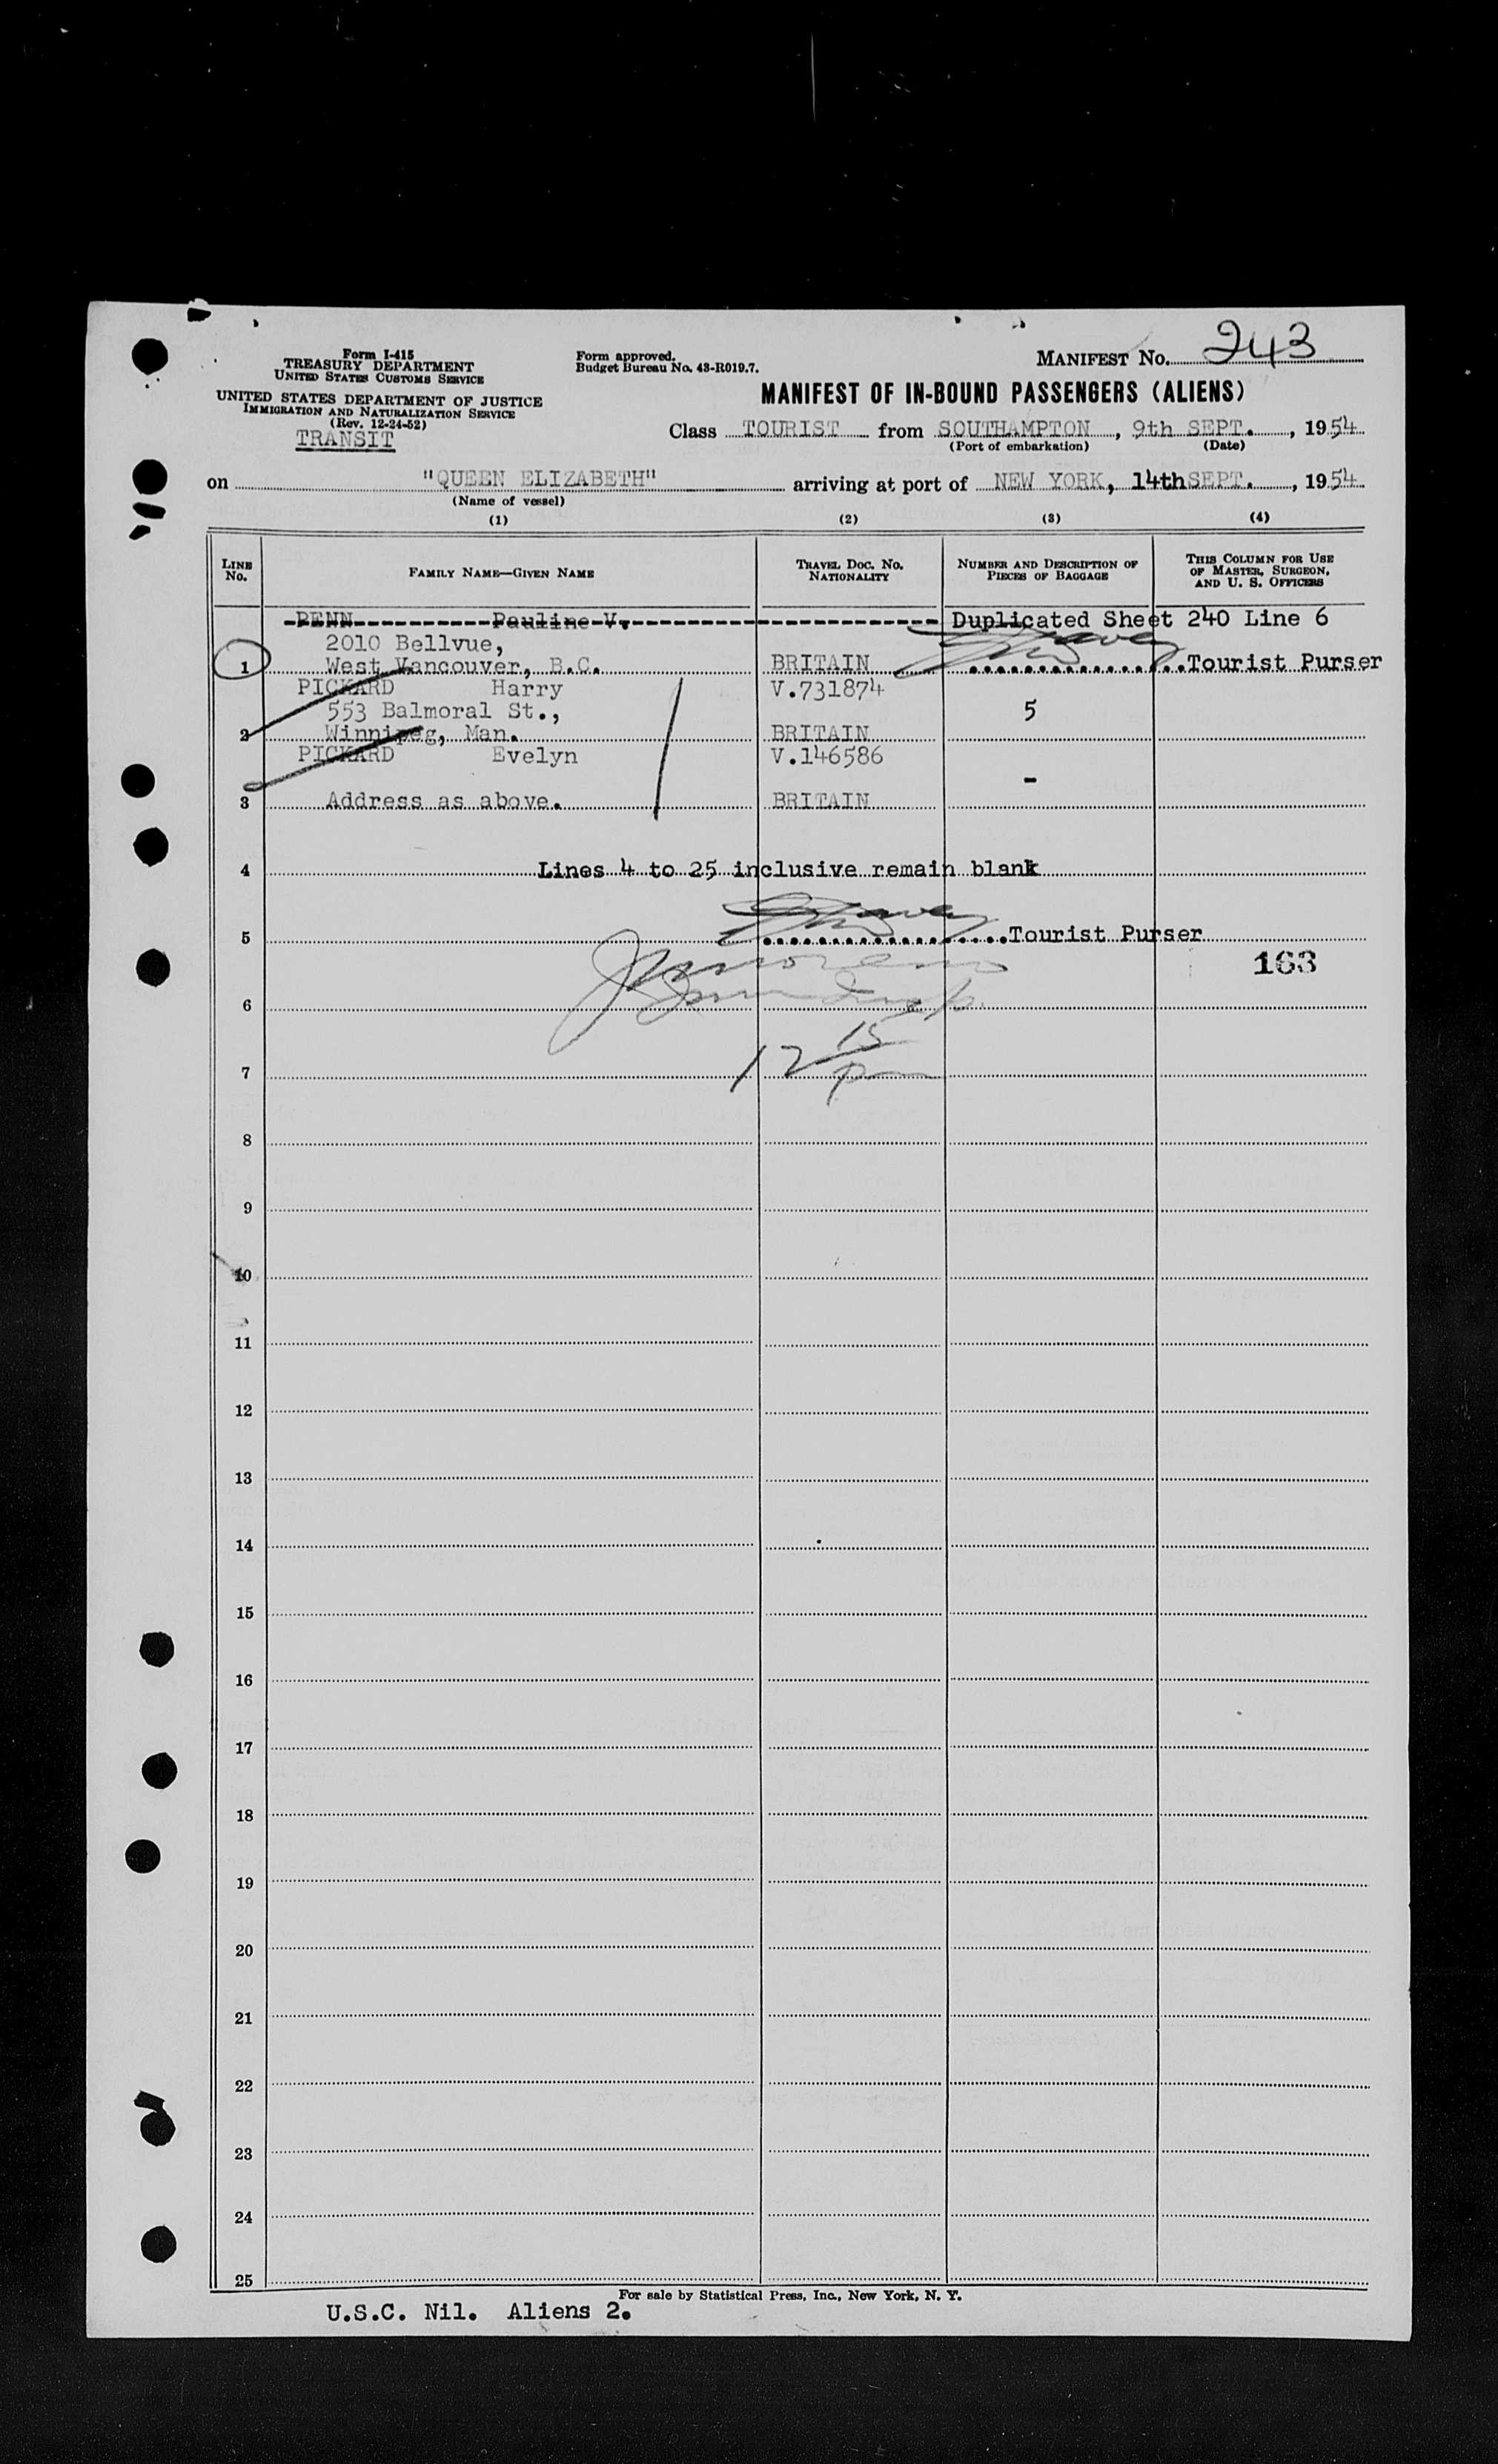 Form I-415
TREASURY DEPARTMENT
UNITED STATES CUSTOMS SERVICE
UNITED STATES DEPARTMENT OF JUSTICE
IMMIGRATION AND NATURALIZATION SERVICE
(Rev. 12-24-52)
TRANSIT
Form approved.
Budget Bureau No. 43-R019.7.
MANIFEST NO. 243
MANIFEST OF IN-BOUND PASSENGERS (ALIENS)
Class TOURIST from SOUTHAMPTON, 9th SEPT., 1954
(Port of embarkation) (Date)
on "QUEEN ELIZABETH" arriving at port of NEW YORK, 14th SEPT., 1954
(Name of vessel)
(1) (2) (3) (4)
LINE No. FAMILY NAME—GIVEN NAME TRAVEL DOC. NO. NATIONALITY NUMBER AND DESCRIPTION OF PIECES OF BAGGAGE THIS COLUMN FOR USE OF MASTER, SURGEON, AND U. S. OFFICERS
PENN Pauline V. Duplicated Sheet 240 Line 6
2010 Bellvue,
1 West Vancouver, B.C. BRITAIN Tourist Purser
PICKARD Harry V.731874
553 Balmoral St., 5
2 Winnipeg, Man. BRITAIN
PICKARD Evelyn V.146586
-
3 Address as above. BRITAIN
4 Lines 4 to 25 inclusive remain blank
5 Tourist Purser
163
6
12 15
7 pm
8
9
10
11
12
13
14
15
16
17
18
19
20
21
22
23
24
25
For sale by Statistical Press, Inc., New York, N. Y.
U.S.C. Nil. Aliens 2.